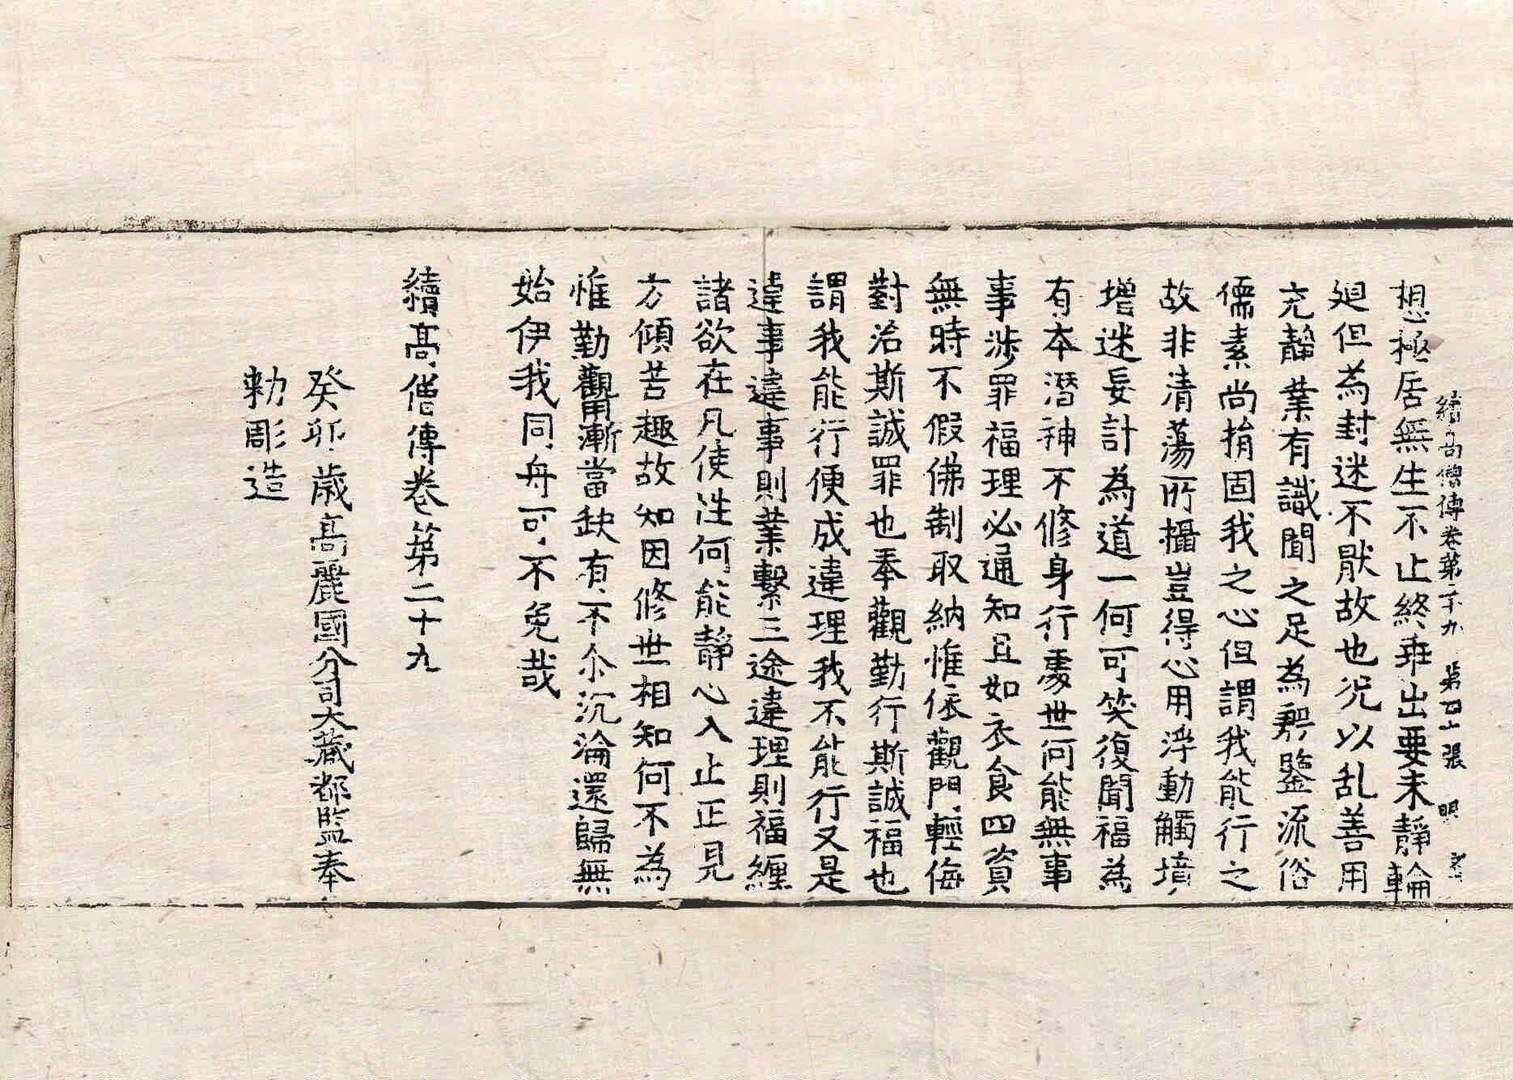 續高僧傳卷第二十九　第四十張　明
想極居無生不止終乖出要未靜輪
𢌞但為封迷不猒故也況以乱善用
充靜業有識聞之足為殷鑒流俗
儒素尚捐固我之心但謂我能行之
故非清蕩所攝豈得心用浮動觸境
增迷妄計為道一何可笑復聞福為
有本潛神不修身行處世何能無事
事涉罪福理必通知且如衣食四資
無時不假佛制取納惟依觀門輕侮
對治斯誠罪也奉觀勤行斯誠福也
謂我能行便成違理我不能行又是
違事違事則業繫三途違理則福纏
諸欲在凡使性何能靜心入止正見
方傾苦趣故知因修世相知何不為
惟勤觀用漸當缺有不尒沉淪還歸無
始伊我同舟可不免哉
續高僧傳卷第二十九
癸卯歲高麗國分司大藏都監奉
勅彫造